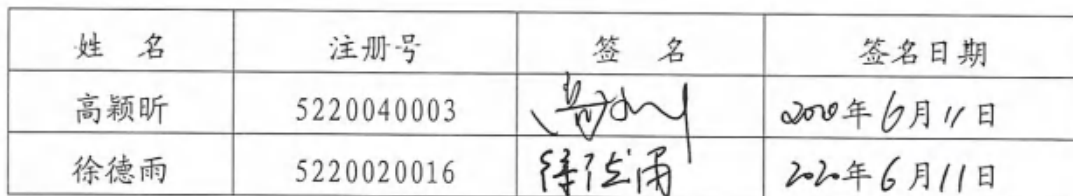 姓 名 注册号 签 名 签名日期
高颖昕 5220040003 2020年6月11日
徐德雨 5220020016 徐德雨 2020年6月11日